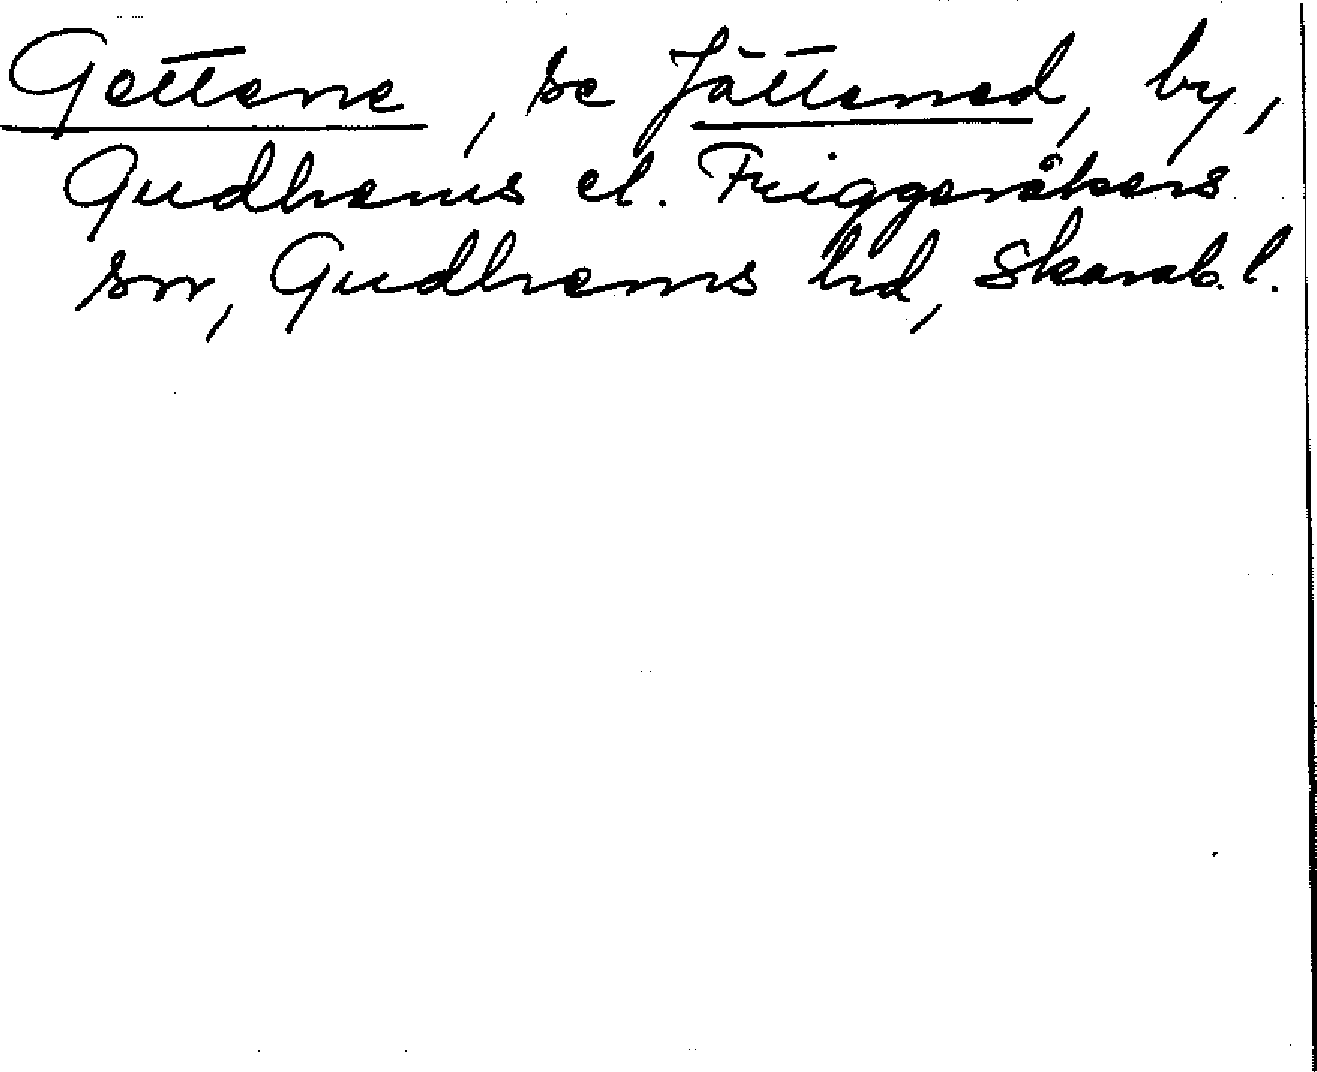 Gettene, se Jättened, by,
Gudhems el. Friggeråkers
snr, Gudhems hd, Skarab.l.